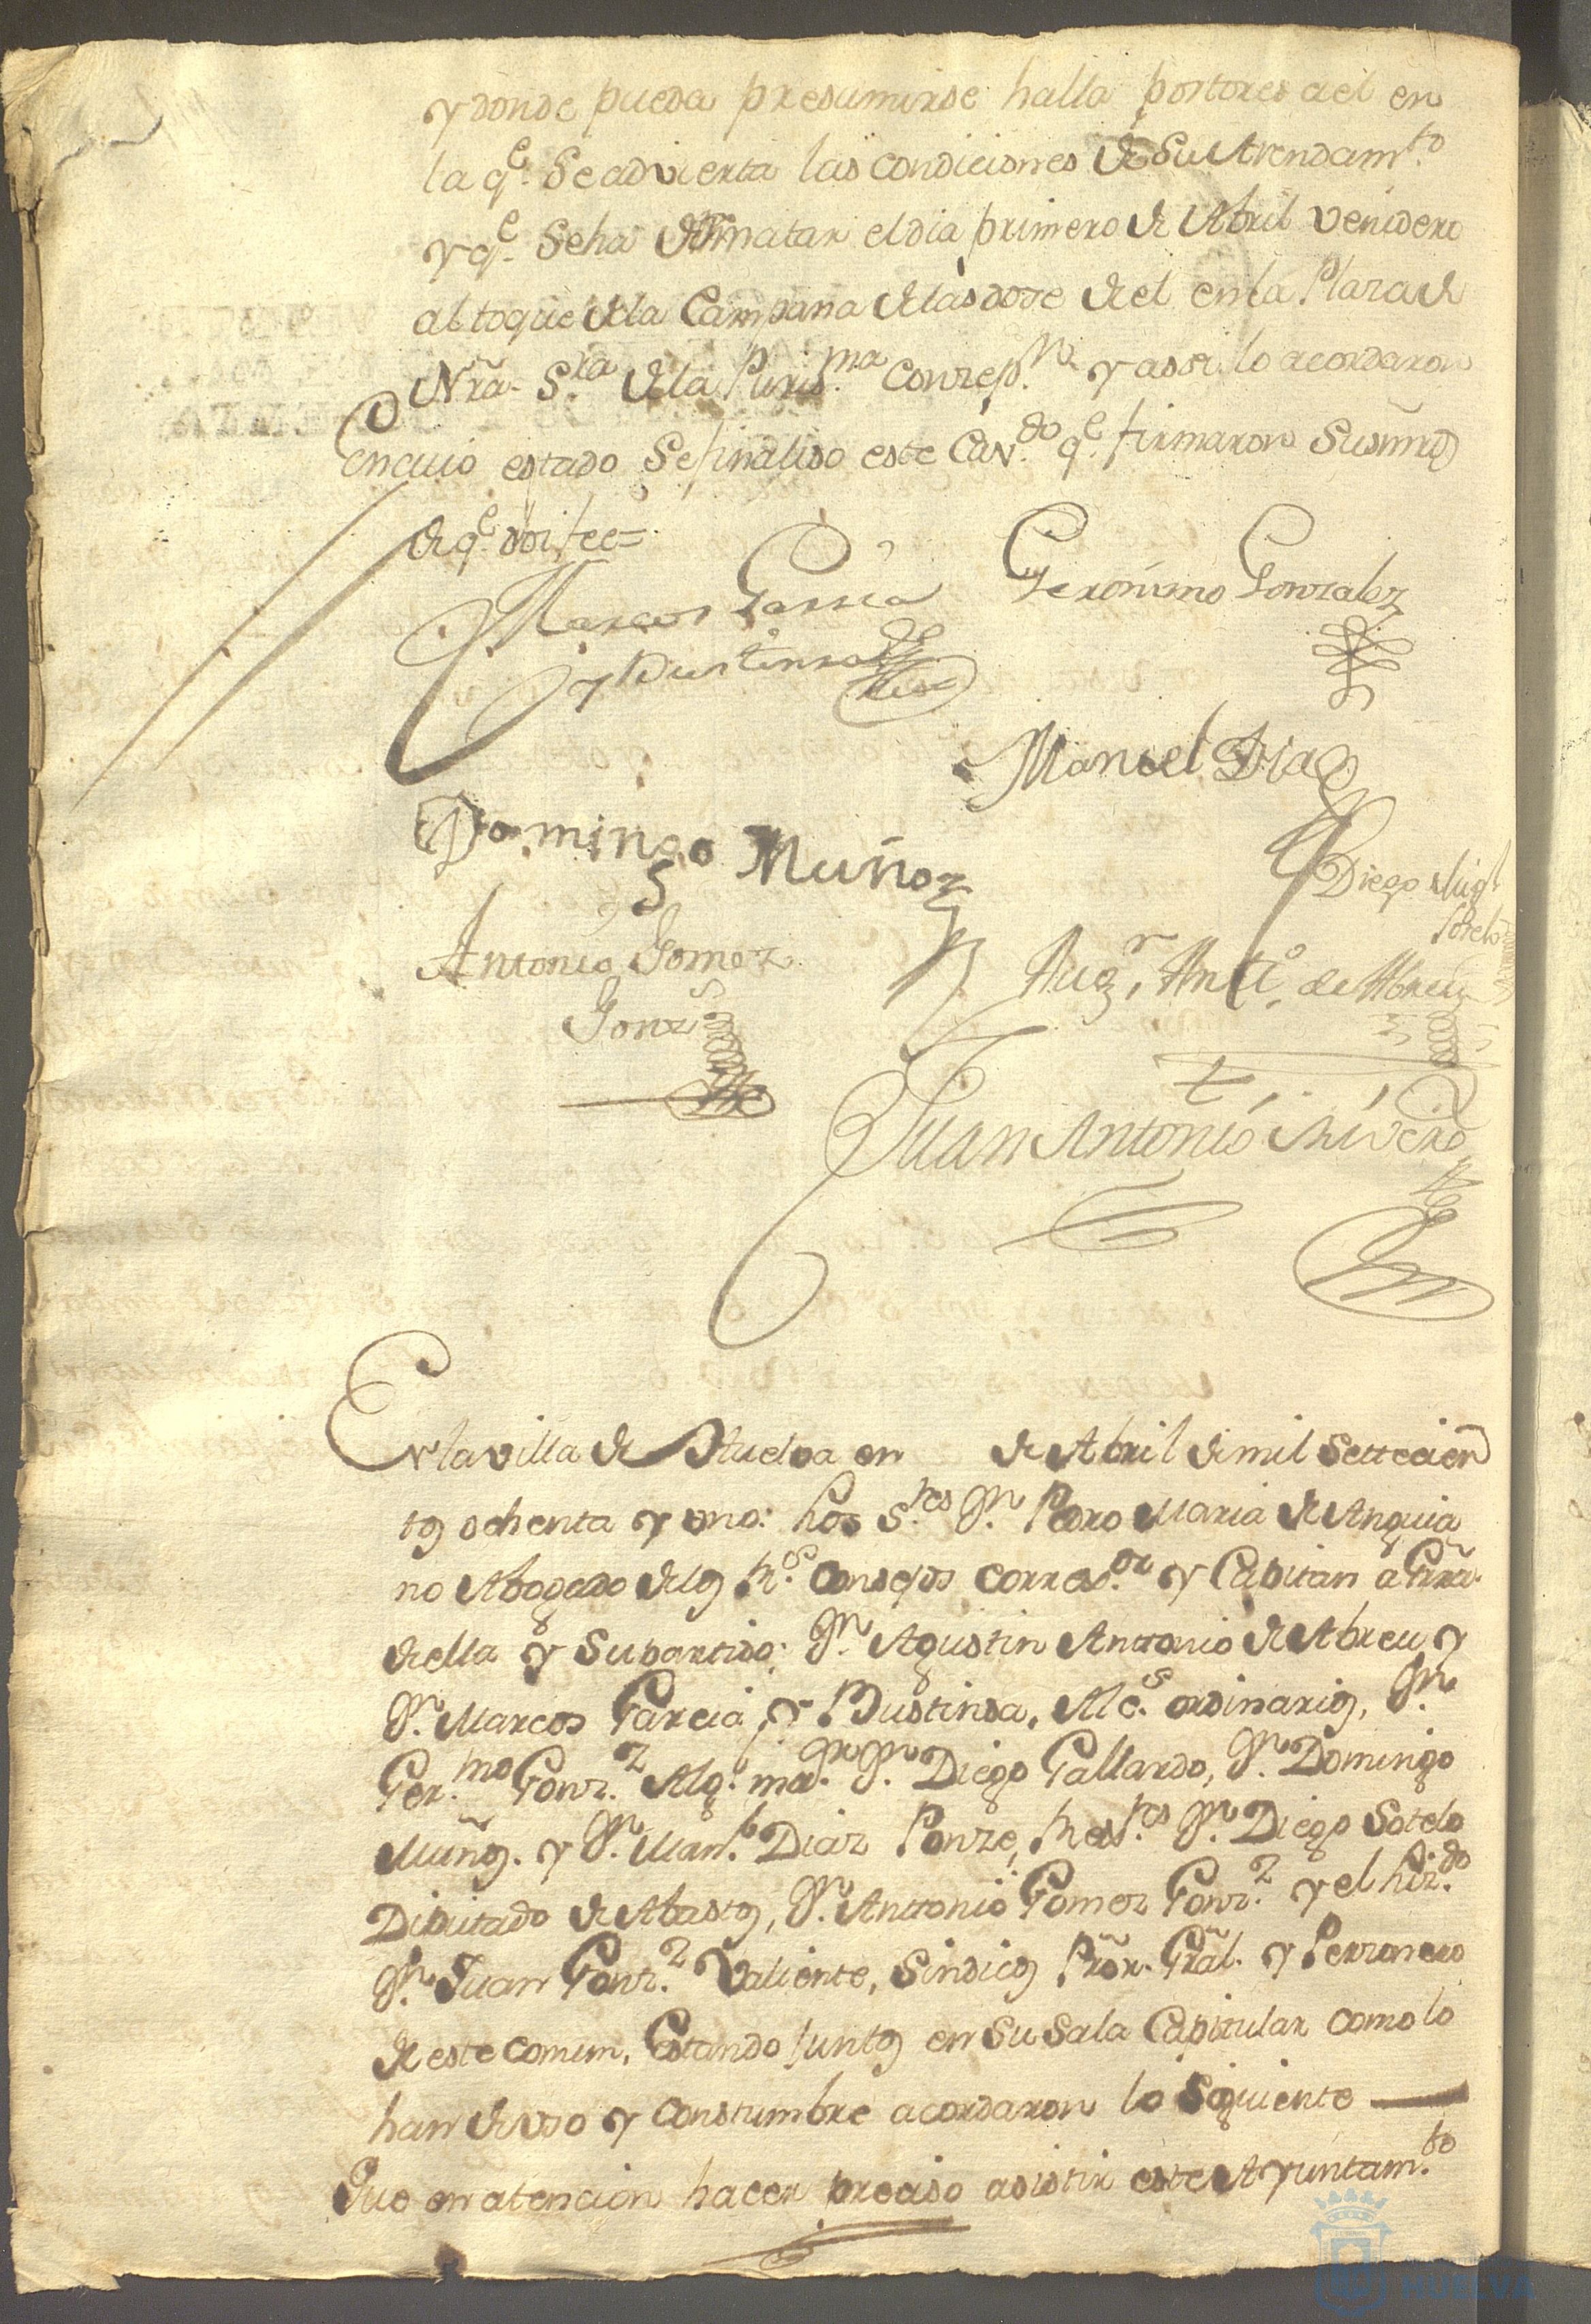 y donde pueda presumirse halla postores ael en
la q.e Se advierta las condiciones de Su Arrendam.to
y q.e Seha de Rematar el dia primero de Abril venidero
al toque de la Campana de las dose de el en la Plaza de
Nrã. S.ra de la Puris.ma Conzep.n y assi lo acordaron
en cuio estado Se finaliso este Cav.do q.e firmaron Susmrd
de q.e doi fee=
Marcos Garcia
y Bustinsa
Geronimo Gonzalez
Manuel Diaz
Domingo Muñoz
Diego Migl
Sotelo
Antonio Gomez
Gonz
Aug.r Ant.o de Abreu
Juan Antonio Rivero
En la villa de Huelva en de Abril de mil Settecien
tos ochenta y uno: Los S.res Dn. Pedro Maria de Anguia
no Abogado de los R.s Consejos Correx.or y Capitan à Grrã.
de ella y Su partido; Dn. Agustin Anttonio de Abreu y
Dn. Marcos Garcia, y Bustinsa, Alc.s ordinarios, Dn.
Ger.mo Gonz.z Alg.l mor. Dn. Diego Gallardo, Dn. Domingo
Muñoz. y Dn. Man.l Diaz Ponze, Rex.res Dn. Diego Sotelo
Diputado de Abastos, Dn. Anttonio Gomez Gonz.z y el Liz.do
Dn. Juan Gonz.z Valiente, Sindicos Prõr. Grãl. y Perzonero
de este comun, Estando juntos en Su Sala Capitular como lo
han de uso y Constumbre acordaron lo Siguiente
Que en atencion hacer preciso asistir este Ayuntam.to
HUELVA